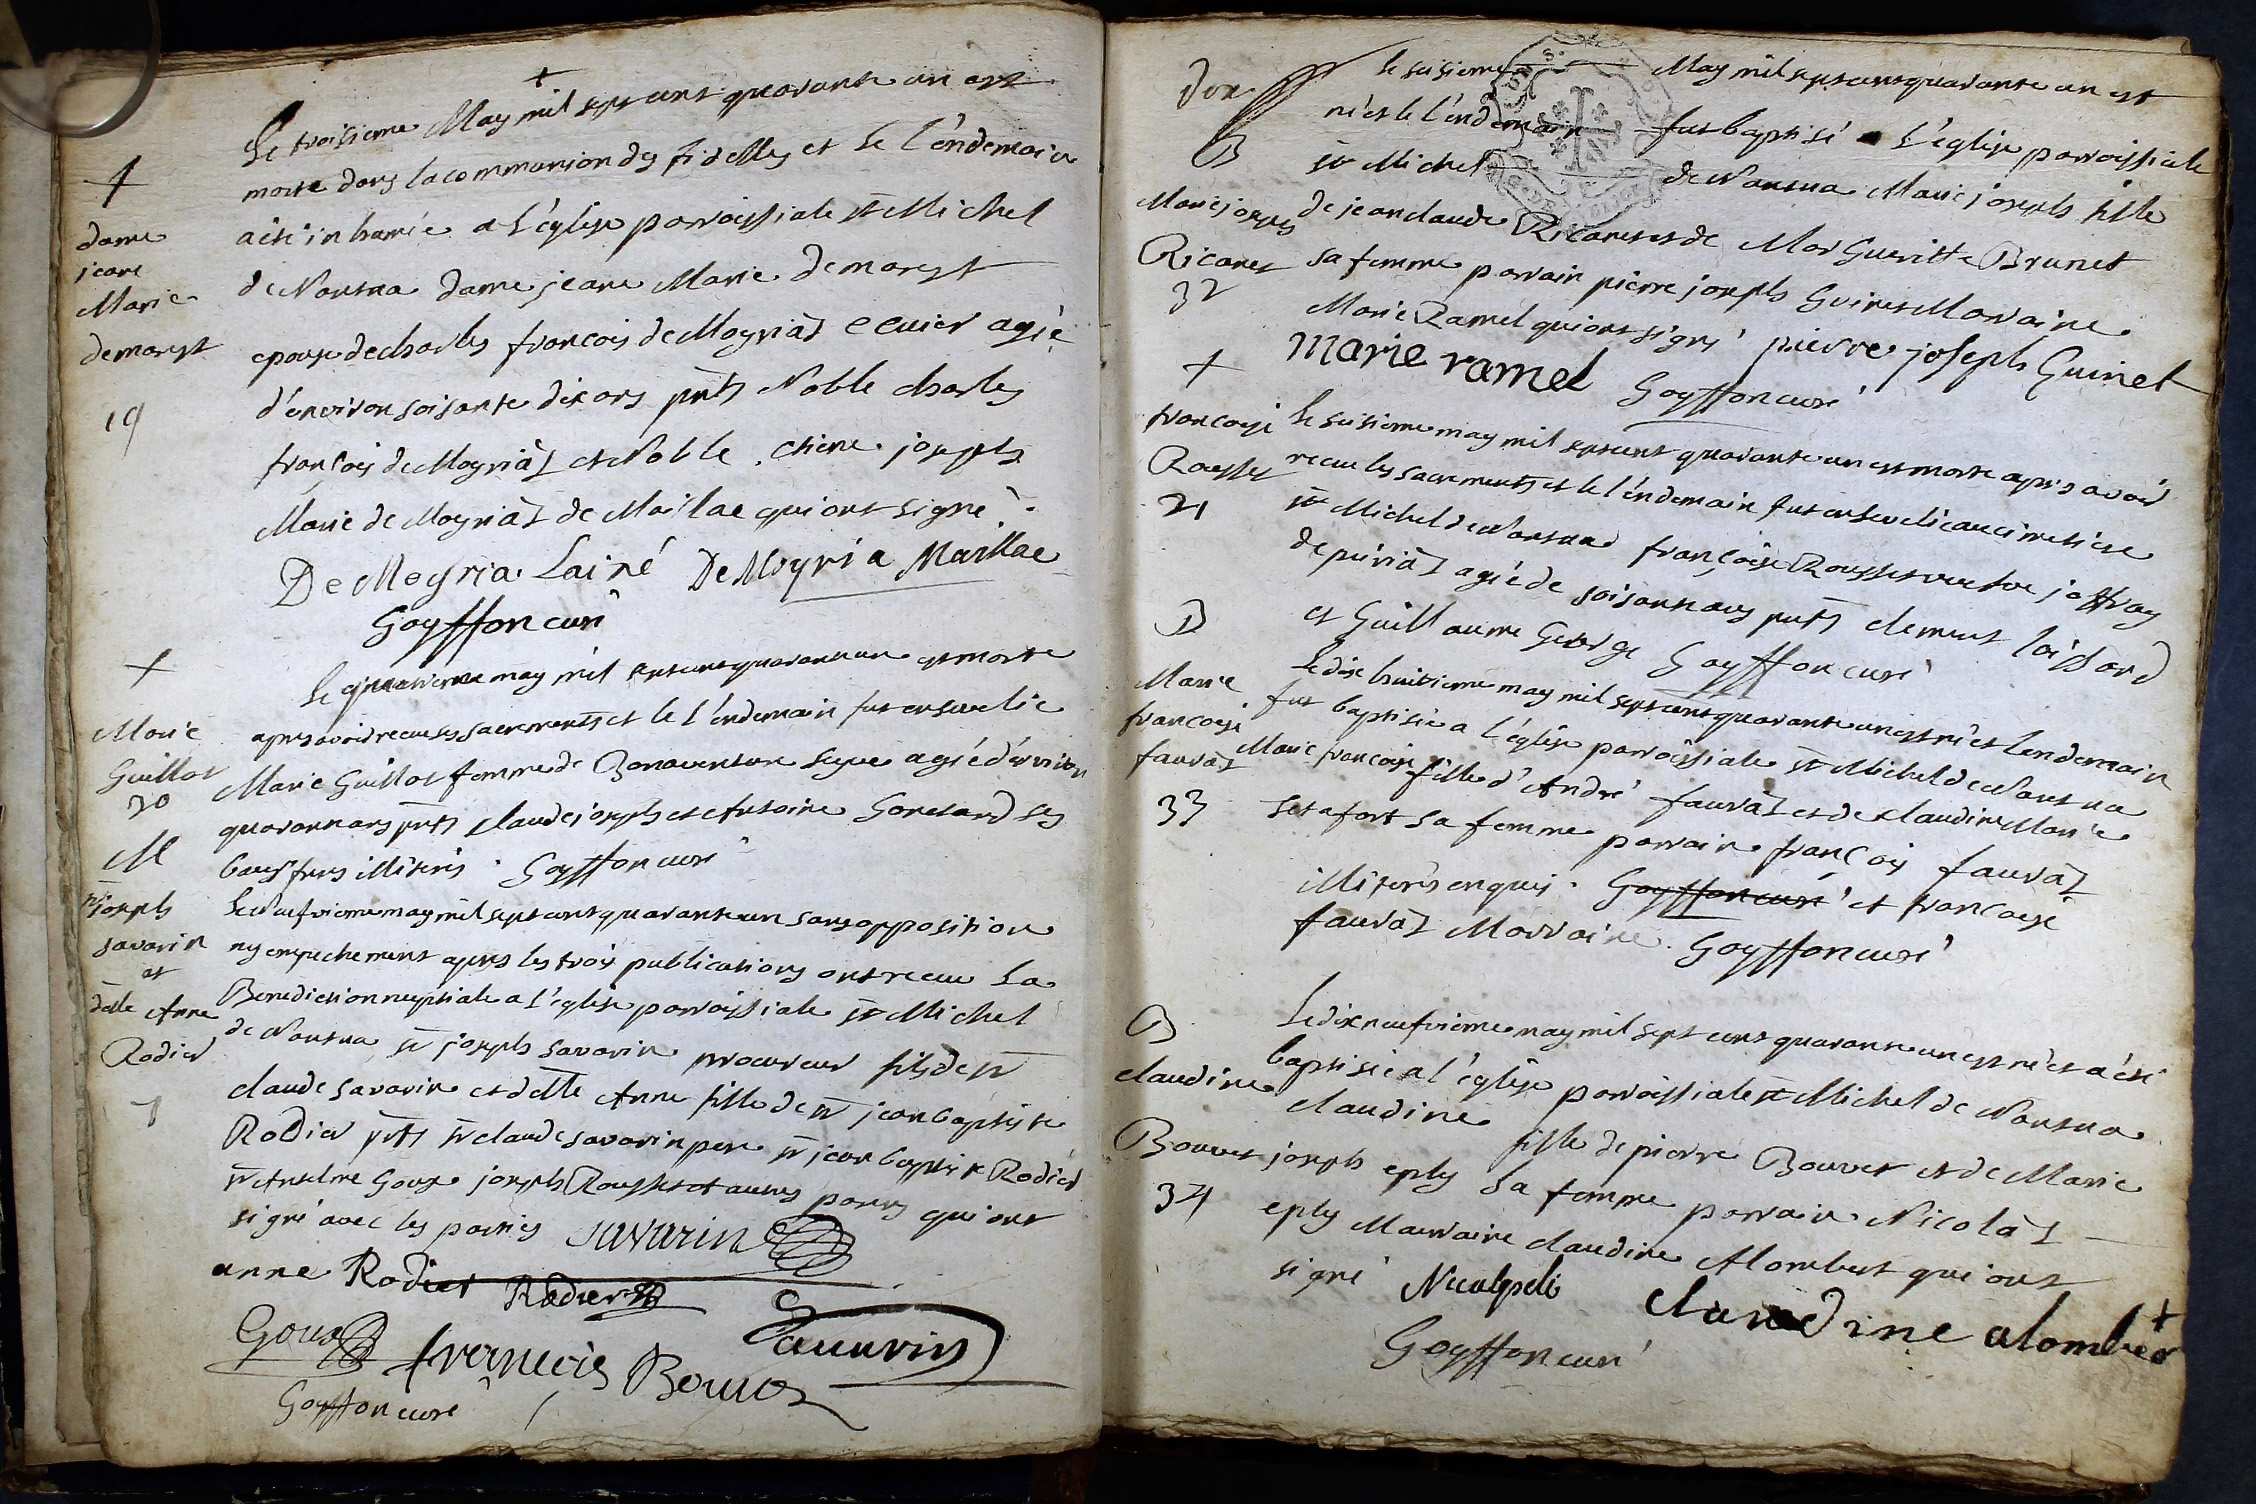 +
Le troisieme May mil sept cent quarante un est
morte dans la communion des fidelles et le l'endemain
a été inhumée a l'église parroissiale st Michel
de Nantua dame jeane Marie demarest
epouse de charles françois de Moyriat ecuier agée
d'environ soisante dix ans pnts Noble charles
françois de Moyriat et Noble joseph
Marie de Moyriat de Maillac qui ont signé
De Moyria Lainé De Moyria Maillac
Goyffon curé
+
dame
jeane
Marie
demarest
19
Le quatrieme may mil sept cent quarante un est morte
apres avoir receu ses sacrements et le l'endemain fut ensevelie
Marie Guillot femme de Bonaventure agée d'environ
quarante ans pnts claude joseph et Antoine ses
beaux freres illiterés. Goyffon curé
+
Marie
Guillot
20
Le Neufvieme may mil sept cent quarante un sans opposition
ny empechement apres les trois publications ont receu la
Benediction nuptiale a l'église parroissiale st Michel
de Nantua sr joseph savarin procureur fils de sr
claude savarin et delle Anne fille de sr jean baptiste
Rodier pnts sr claude savarin pere sr jean baptiste Rodier
sr Anselme Goux joseph Rousset et autres parens qui ont
signé avec les parties savarin
anne Rodier Rodier
Goux francois Bouvet Sauvrin
Goyffon curé
M
sr joseph
savarin
et
delle Anne
Rodier
7
Le sisieme May mil sept cent quarante un est
né et le l'endemain fut baptisé a L'église parroissiale
st Michel de Nantua Marie joseph fille
de jean claude Ricanet et de Margueritte Brunet
sa femme parrain pierre joseph Guinet Marraine
Marie Ramel qui ont signé pierre joseph Guinet
Marie ramel Goyffon curé
B
Marie joseph
Ricanet
32
Le sisieme may mil sept cent quarante un est morte apres avoir
receu les sacrements et le l'endemain fut ensevelie au cimetiere
st Michel de Nantua françoise Rousset veufve joffray
de periat agée de soisante ans pnts clement
et Guillaume George Goyffon curé
+
françoise
Rousset
21
Le dix huitieme may mil sept cent quarante un est né et Lendemain
fut baptisée a l'église parroissiale st Michel de Nantua
Marie françoise fille d'André fauvat et de claudine Marie
sa femme parrain françois fauvat
illiterés enquis. Goyffon curé et françoise
fauvat Marraine. Goyffon curé
B
Marie
françoise
fauvat
33
Le dix neufvieme may mil sept cent quarante un est né et a été
baptisée a l'église parroissiale st Michel de Nantua
claudine fille de pierre Bouvet et de Marie
joseph eply sa femme parrain Nicolas
eply Marraine claudine Alombert qui ont
signé Nicolas eply claudine alombert
Goyffon curé
B
claudine
Bouvet
34